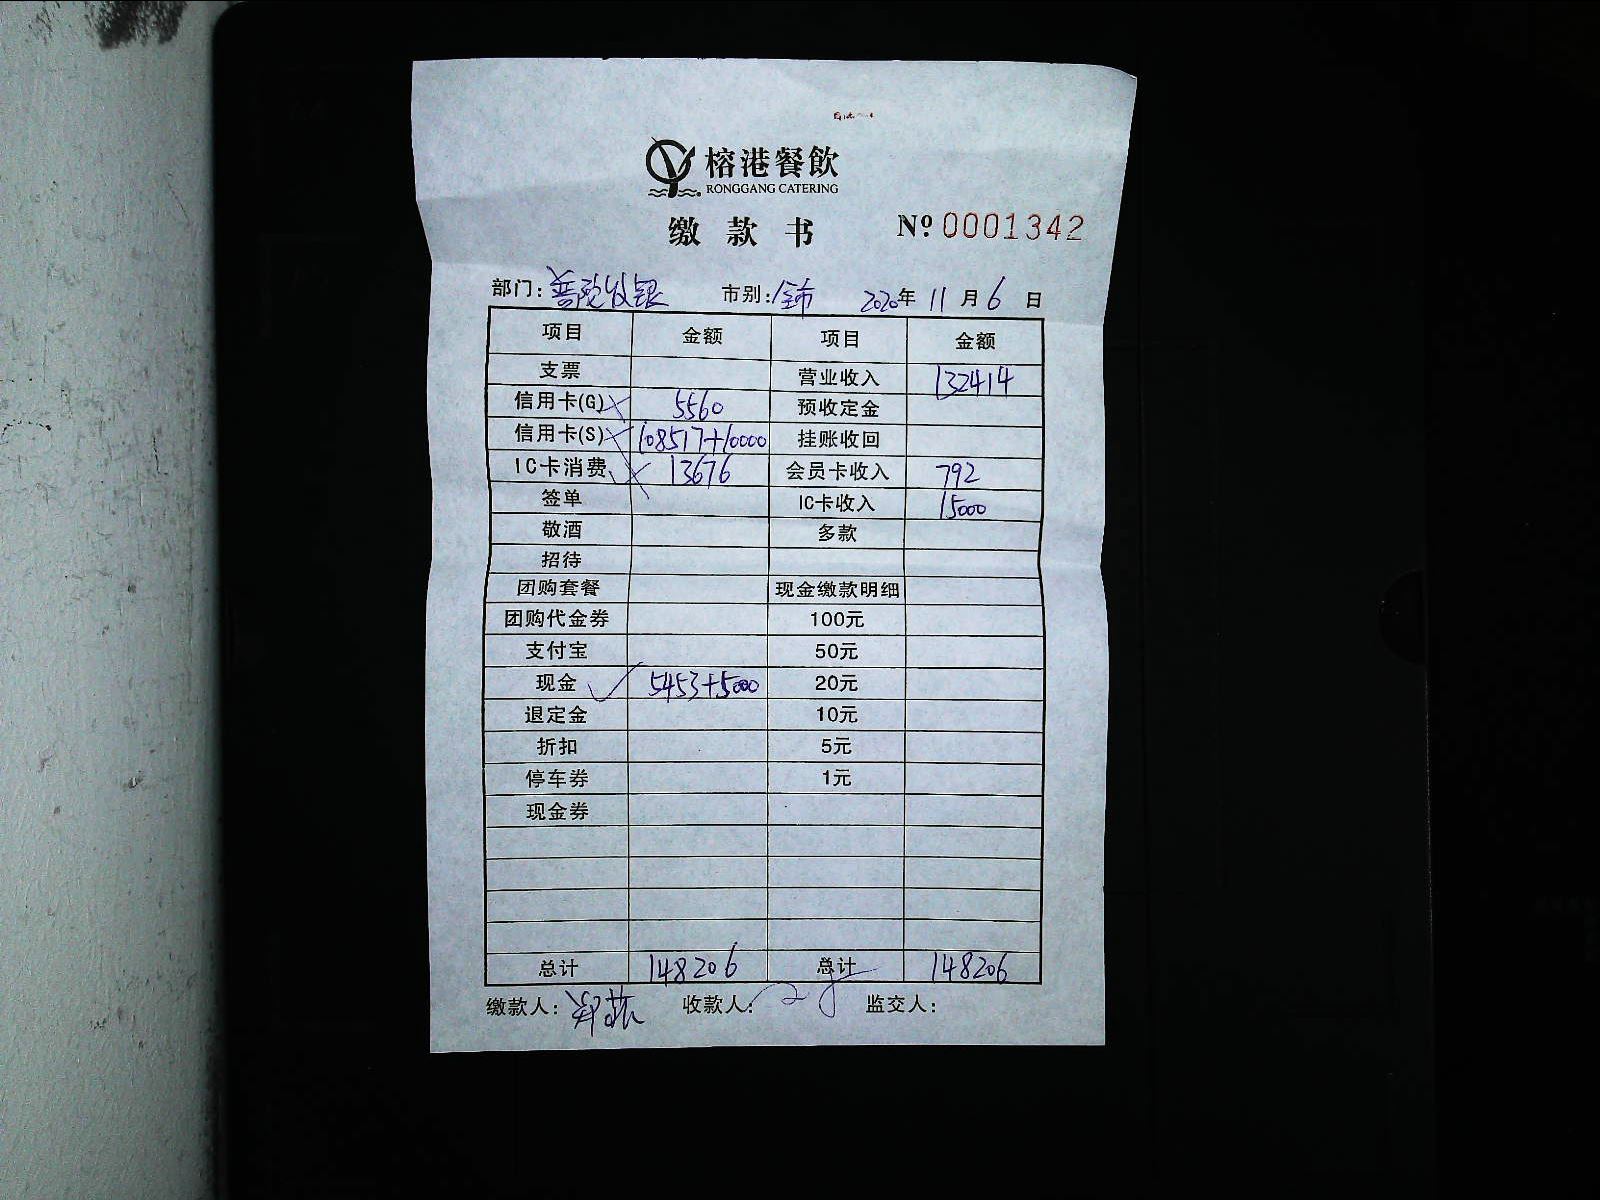 榕港餐飲
RONGGANG CATERING
缴款书 № 0001342
部门: 收银 市别: 全市 2020年 11月 6日
项目 金额 项目 金额
支票 营业收入 132414
信用卡(G) 5560 预收定金
信用卡(S) 108517+10000 挂账收回
IC卡消费 13676 会员卡收入 792
签单 IC卡收入 15000
敬酒 多款
招待
团购套餐 现金缴款明细
团购代金券 100元
支付宝 50元
现金 ✓ 5453+5000 20元
退定金 10元
折扣 5元
停车券 1元
现金券
总计 148206 总计 148206
缴款人: 收款人: 监交人: